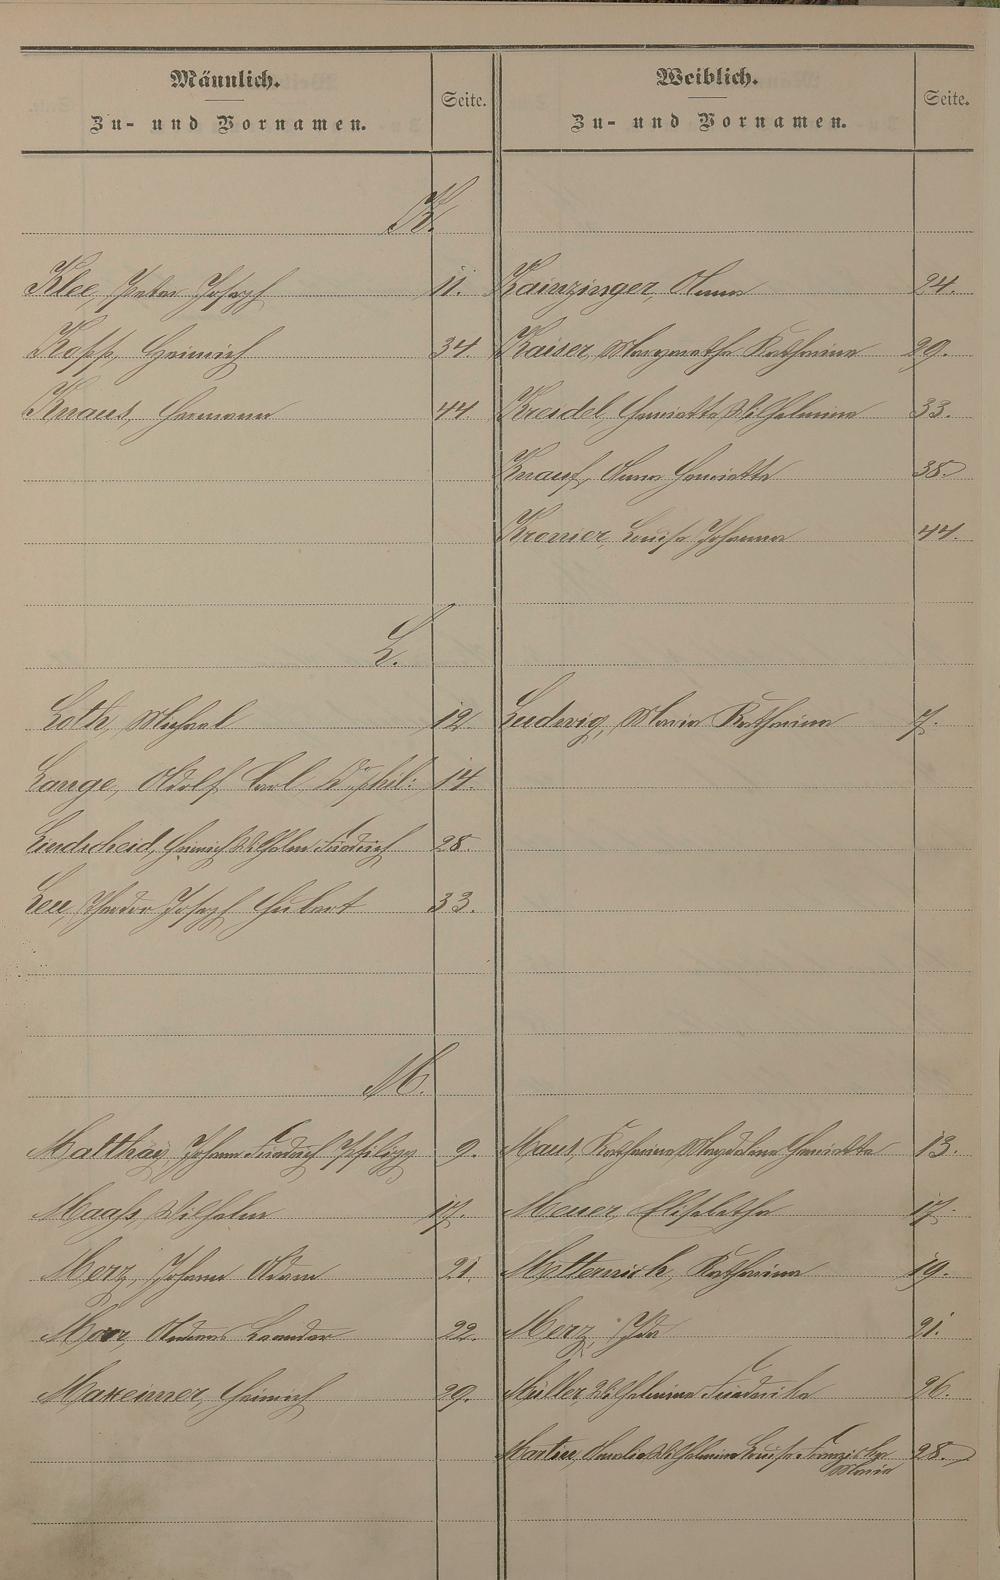 Männlich.
Zu- und Vornamen.
Seite.
Weiblich.
Zu- und Vornamen.
Seite.
K.
Klee, Peter Joseph 11.
Kainzinger, Anna 24.
Kopp, Heinrich 34.
Kaiser, Margaretha Katharina 29.
Knaus, Hermann 44.
Kreidel, Henriette Wilhelmine 33.
Knauf, Anna Henriette 38.
Kromer, Louise Johanna 44.
L.
Loth, Michael 12.
Ludwig, Maria Katharina 7.
Lange, Adolf Carl, Dr phil: 14.
Lindscheid, Heinrich Wilhelm Friedrich 28.
Leu, Theodor Joseph Hubert 33.
M.
Matthäy, Johann Friedrich Philipp 9.
Maus, Katharina Magdalena Henriette 13.
Maaß, Wilhelm 17.
Meuer, Elisabetha 17.
Merz, Johann Adam 21.
Metternich, Katharina 19.
Moor, Andreas Leander 22.
Merz, Ida 21.
Maxeiner, Heinrich 29.
Müller, Wilhelmine Friederike 26.
Martin, Amalie Wilhelmine Louise Franziska 28.
Maria